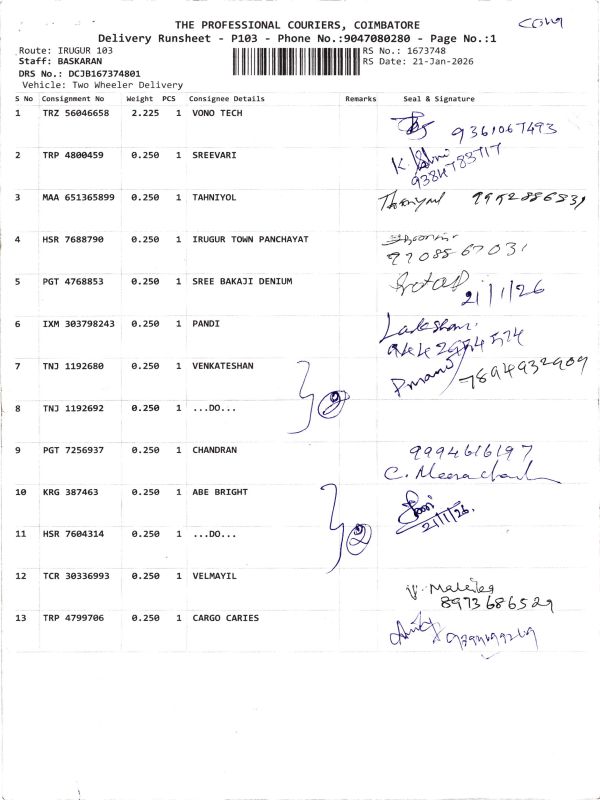 THE PROFESSIONAL COURIERS, COIMBATORE
Delivery Runsheet - P103 - Phone No.:9047080280 - Page No.:1
Route: IRUGUR 103 RS No.: 1673748
Staff: BASKARAN RS Date: 21-Jan-2026
DRS No.: DCJB167374801
Vehicle: Two Wheeler Delivery
S No Consignment No Weight PCS Consignee Details Remarks Seal & Signature
1 TRZ 56046658 2.225 1 VONO TECH
9361067493
2 TRP 4800459 0.250 1 SREEVARI
9384783717
3 MAA 651365899 0.250 1 TAHNIYOL
9952886831
4 HSR 7688790 0.250 1 IRUGUR TOWN PANCHAYAT
9708567031
5 PGT 4768853 0.250 1 SREE BAKAJI DENIUM
21/1/26
6 IXM 303798243 0.250 1 PANDI
7 TNJ 1192680 0.250 1 VENKATESHAN
7894932909
8 TNJ 1192692 0.250 1 ...DO...
2
9 PGT 7256937 0.250 1 CHANDRAN
9994616197
10 KRG 387463 0.250 1 ABE BRIGHT
21/1/26.
11 HSR 7604314 0.250 1 ...DO...
2
12 TCR 30336993 0.250 1 VELMAYIL
8973686529
13 TRP 4799706 0.250 1 CARGO CARIES